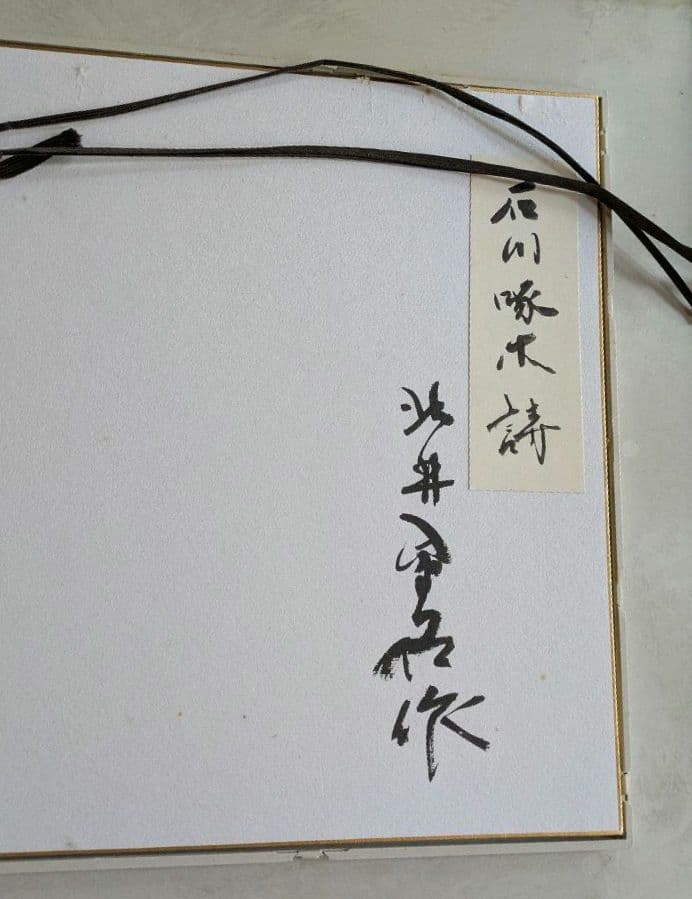 石川啄木 詩
北井
作